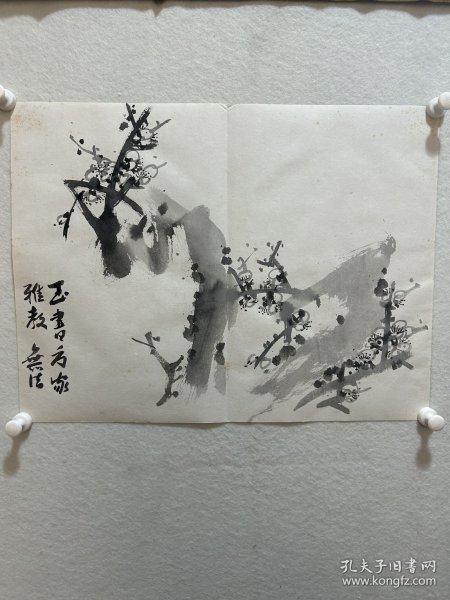 玉书方家
雅教
无法
孔夫子旧书网
www.kongfz.com